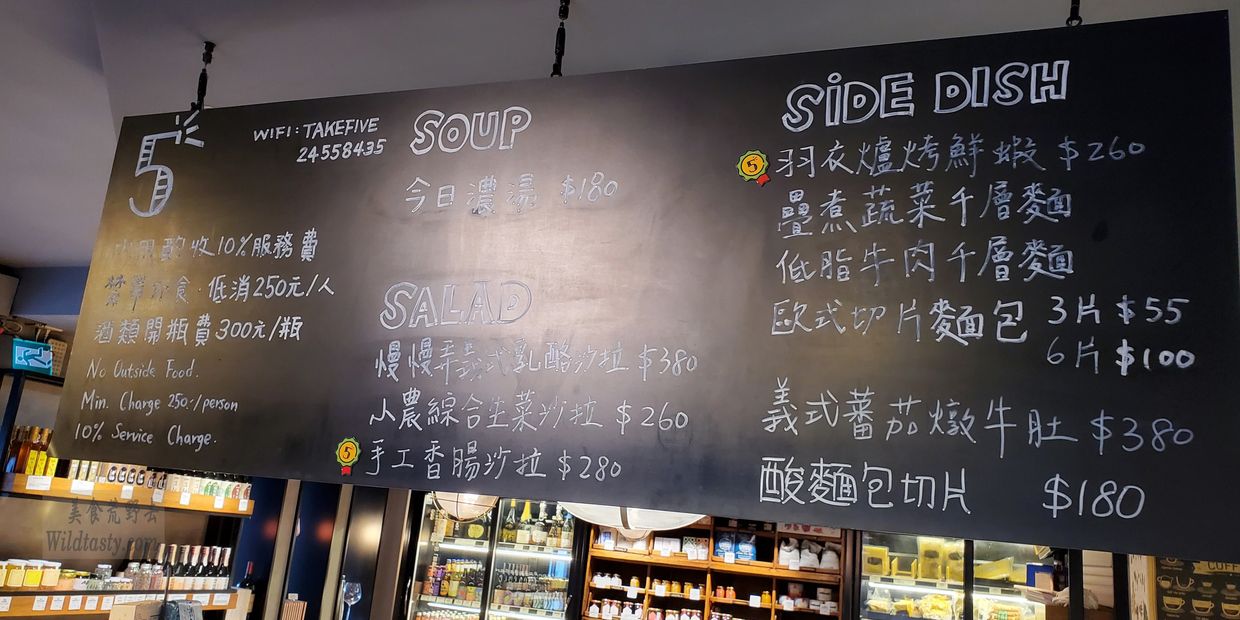 5
WIFI: TAKEFIVE
24558435
內用酌收10%服務費
禁帶外食·低消250元/人
酒類開瓶費300元/瓶
No Outside Food.
Min. Charge 250.-/person
10% Service Charge.
SOUP
今日濃湯 $180
SALAD
慢慢弄義式乳酪沙拉 $380
小農綜合生菜沙拉 $260
5 手工香腸沙拉 $280
SIDE DISH
5 羽衣爐烤鮮蝦 $260
疊煮蔬菜千層麵
低脂牛肉千層麵
歐式切片麵包 3片 $55
6片 $100
義式蕃茄燉牛肚 $380
酸麵包切片 $180
美食荒野去
Wildtasty.com